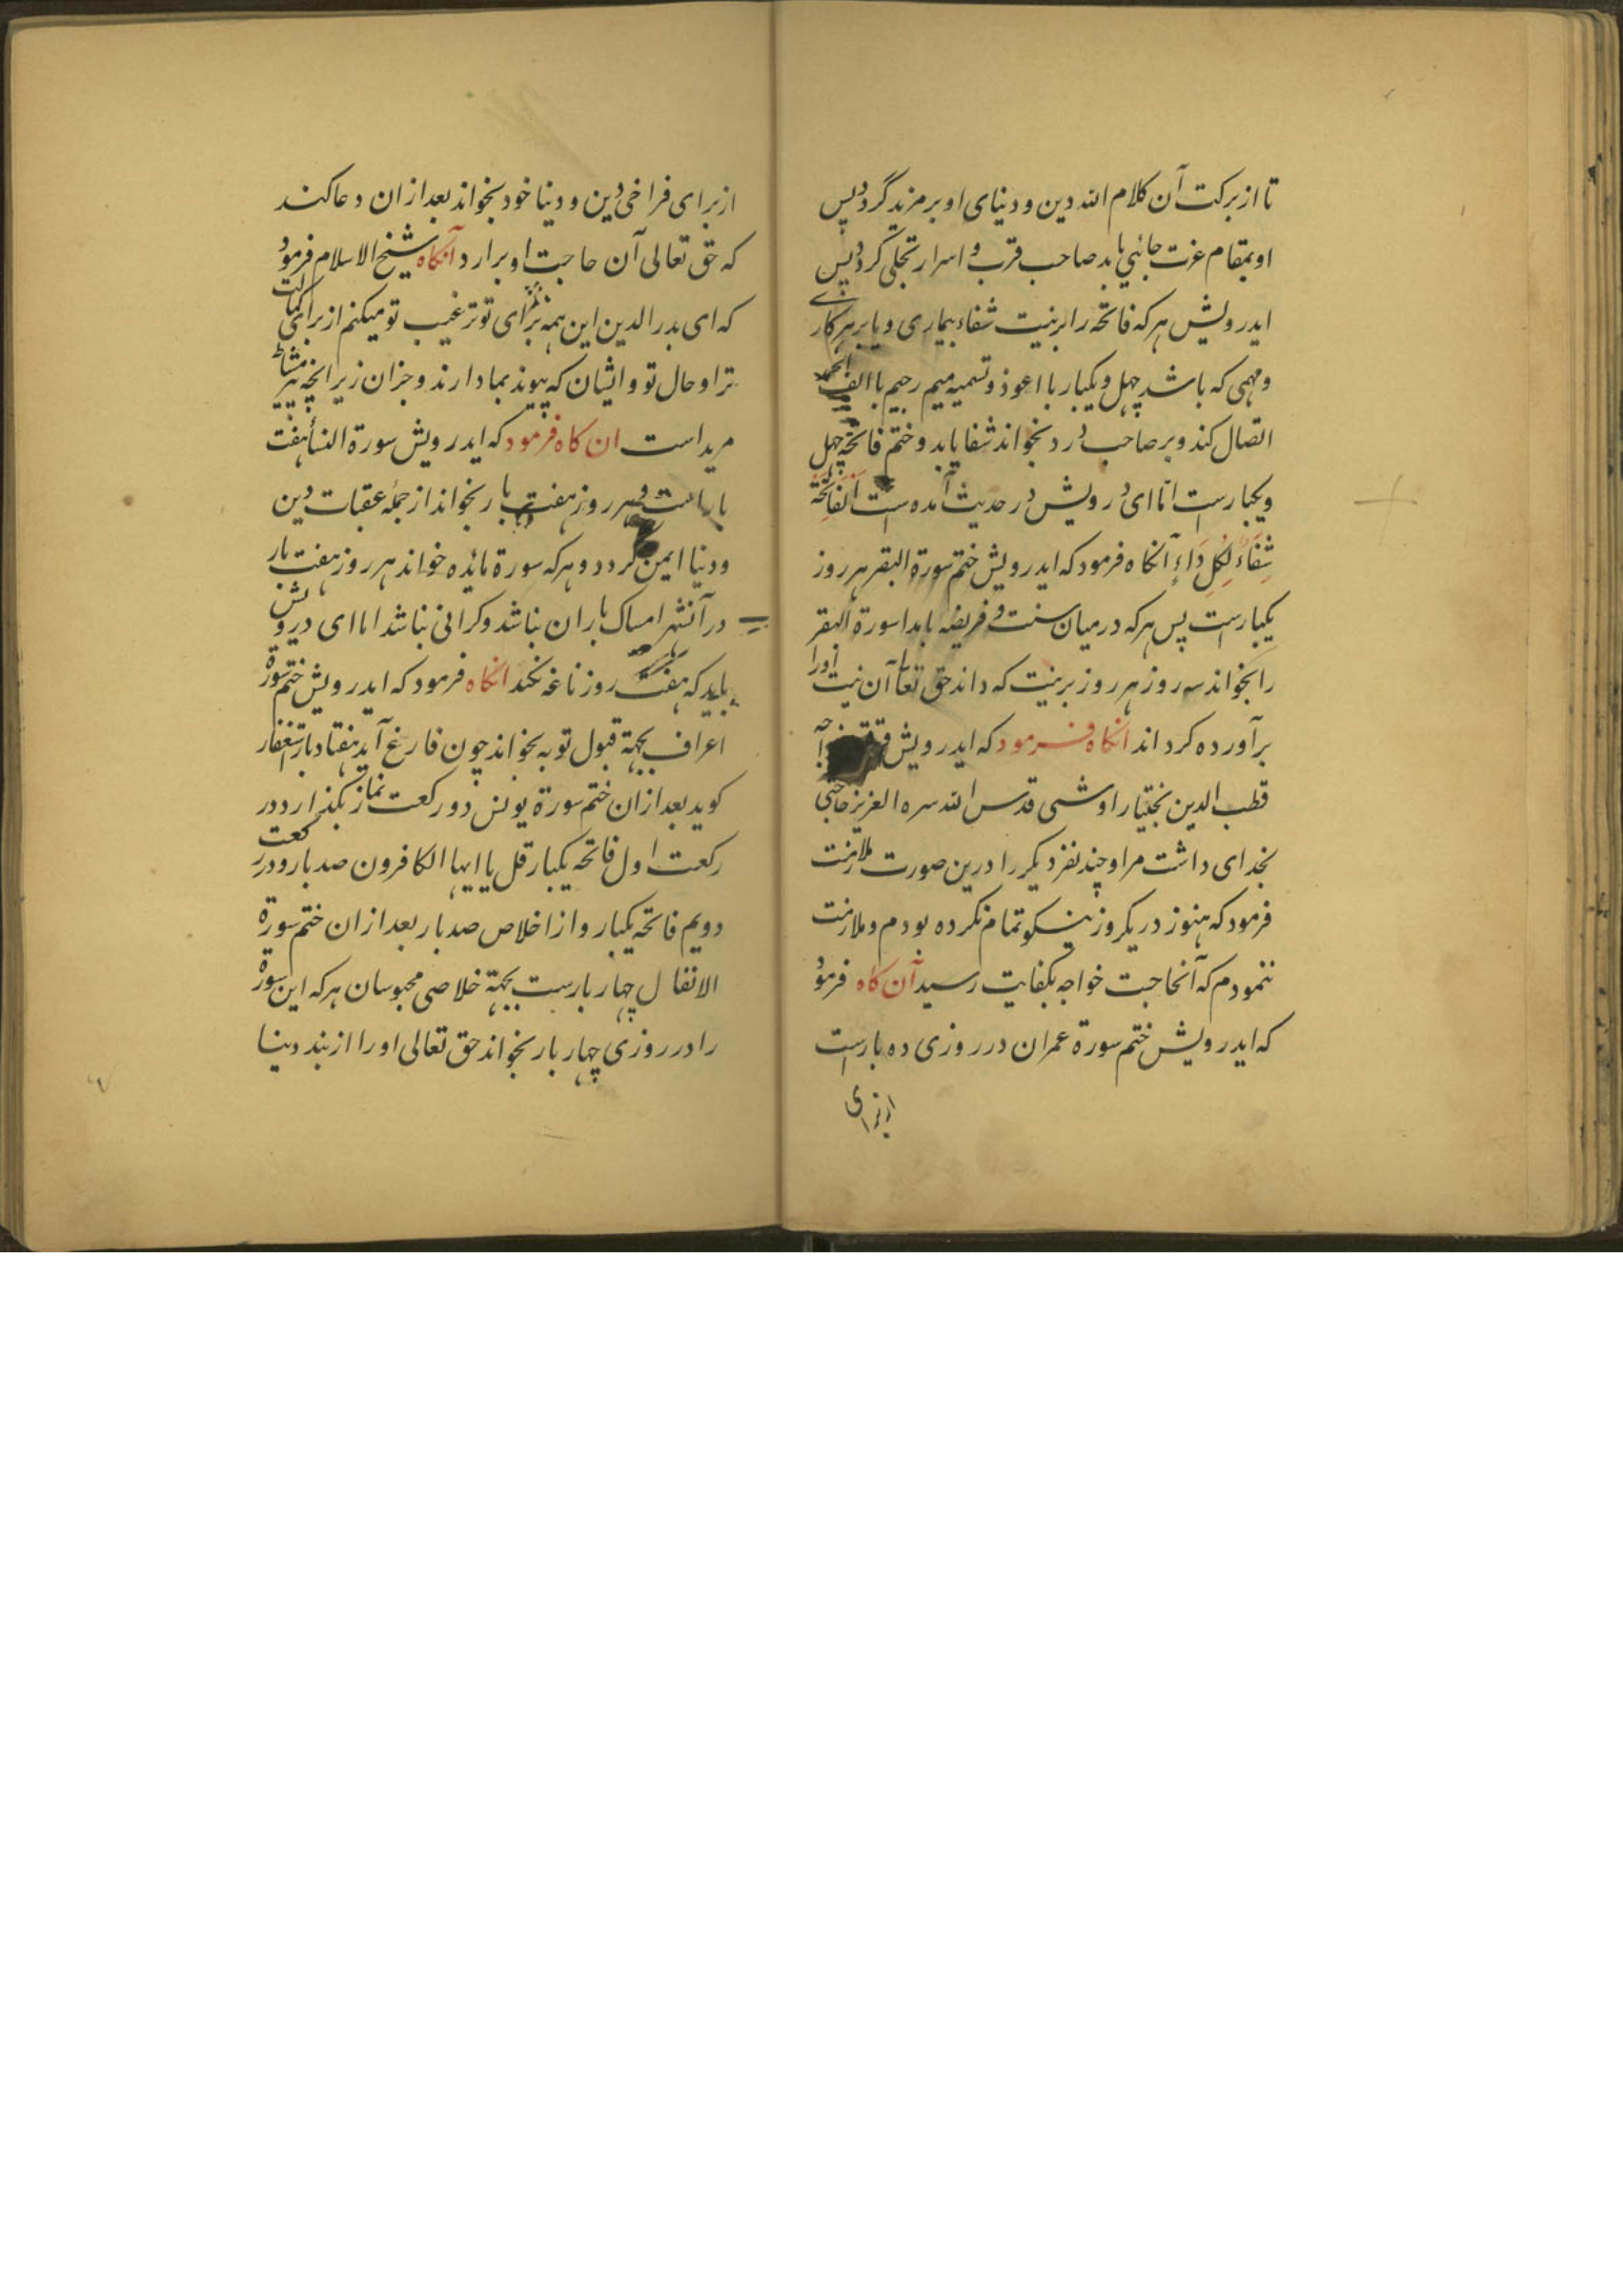 تا از برکت آن کلام الله دین و دنیای او بر مزید گردد پس
او بمقام عزت جائی یابد صاحب قرب و اسرار تجلی گردد پس
ایدرویش هر که فاتحه را بر نیت شفاء بیماری و یا بر هر کاری
و مهمی که باشد چهل و یکبار با اعوذ و تسمیه میم رحیم با الف الحمد
اتصال کند و بر صاحب درد بخواند شفا یابد و ختم فاتحه چهل
و یکبارست اما ای درویش در حدیث آمده است اَلفَاتِحَة
شِفَاءٌ لِکُلِّ دَاءٍ آنکاه فرمود که ایدرویش ختم سورة البقر هر روز
یکبارست پس هر که در میان سنت و فریضه بامداد سورة البقر
را بخواند سه روز هر روز بر نیت که داند حق تعا آن نیت او را
برآورده کرداند انکاه فرمود که ایدرویش وقتی خواجه
قطب الدین بختیار اوشی قدس الله سره العزیز حاجتی
بخدای داشت مرا و چند نفر دیکر را درین صورت ملازمت
فرمود که هنوز در یکروز نیکو تمام نکرده بودم و ملازمت
ننمودم که آنحاجت خواجه بکفایت رسید آن کاه فرمود
که ایدرویش ختم سورة عمران در روزی ده بارست
از برای
از برای فراخی دین و دنیا خود بخواند بعد از ان دعا کند
که حق تعالی آن حاجت او برارد آنکاه شیخ الاسلام فرمود
که ای بدر الدین این همه برای تو ترغیب تو میکنم از برای کمالیت
ترا و حال تو و ایشان که پیوند بما دارند و جز ان زیرا نچه پیر مشاطه
مرید است ان کاه فرمود که ایدرویش سورة النسأ هفت
بار است هر روز هفت بار بخواند از جمله عقبات دین
و دنیا ایمن کردد و هر که سورة مائده خواند هر روز هفت بار
در آنشهر امساک باران نباشد و کرانی نباشد اما ای درویش
باید که هفت روز ناغه نکند انکاه فرمود که ایدرویش ختم سورة
اعراف بجهة قبول توبه بخواند چون فارغ آید هفتاد بار استغفار
کوید بعد از ان ختم سورة یونس دو رکعت نماز بکذارد در
رکعت اول فاتحه یکبار قل یا ایها الکافرون صد بار و در رکعت
دویم فاتحه یکبار و از اخلاص صد بار بعد از ان ختم سورة
الانفال چهار بارست بجهة خلاصی محبوسان هر که این سورة
را در روزی چهار بار بخواند حق تعالی او را از بند دنیا